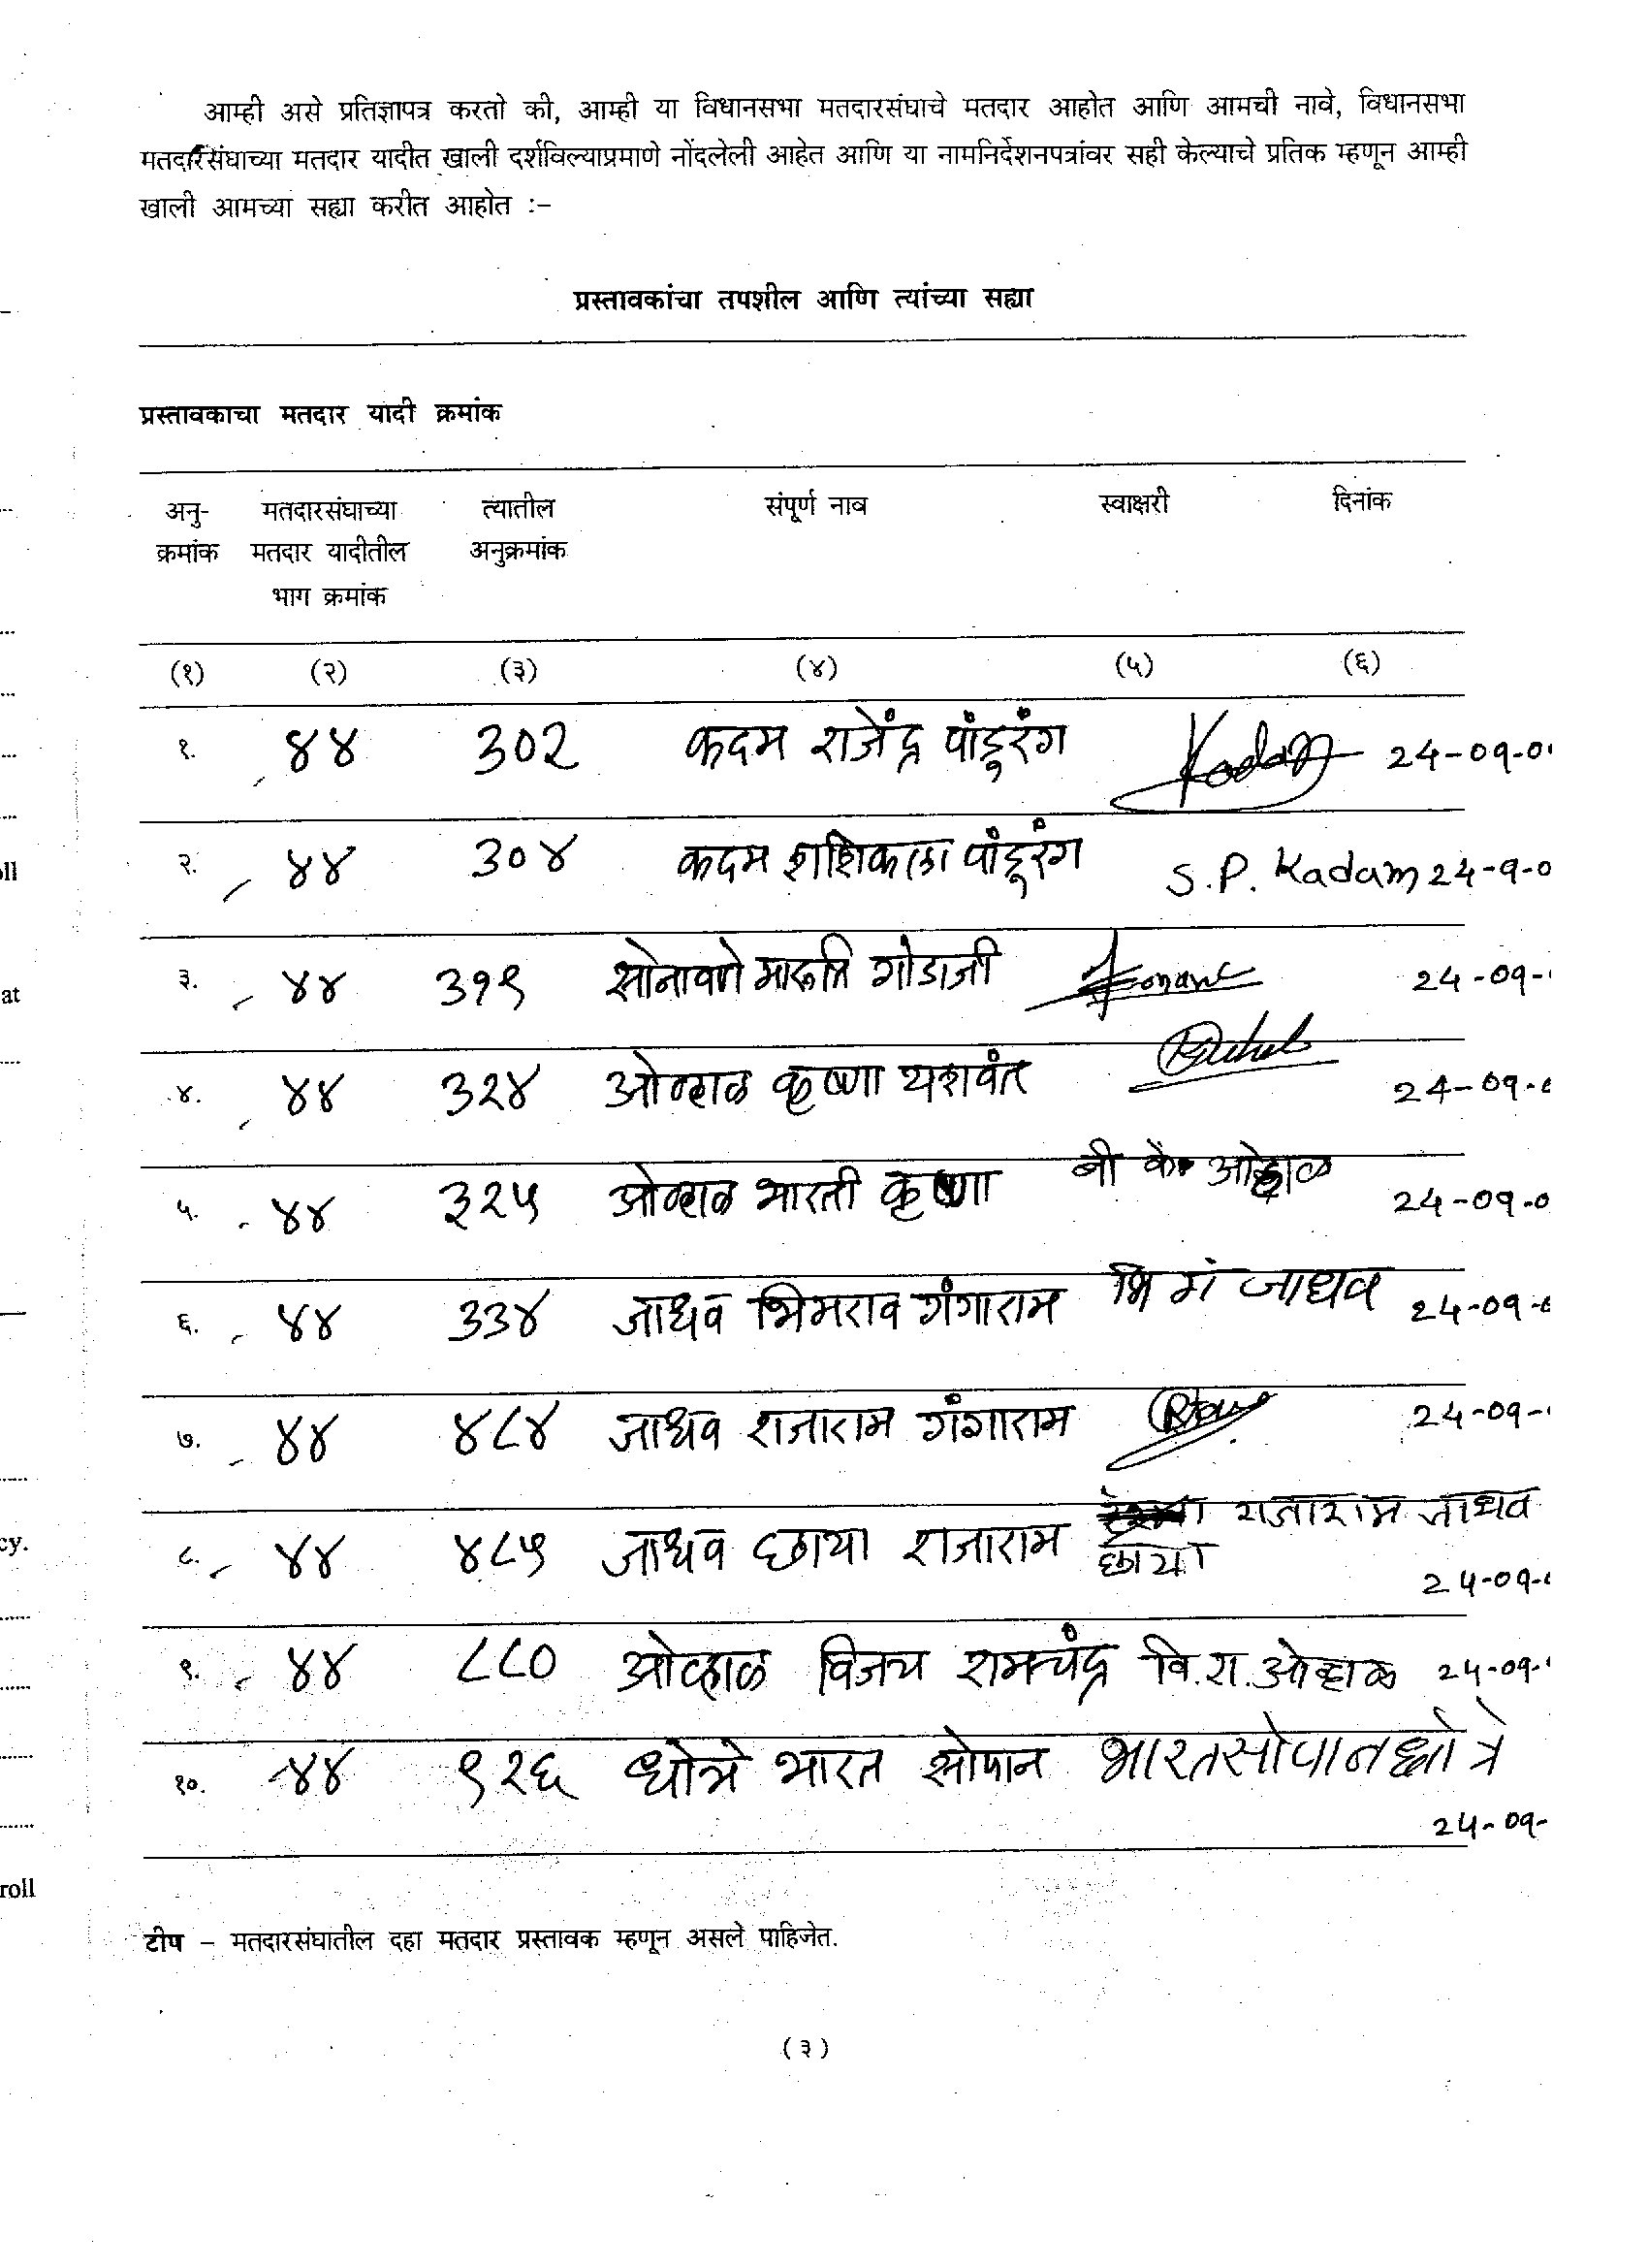 आम्ही असे प्रतिज्ञापत्र करतो की, आम्ही या विधानसभा मतदारसंघाचे मतदार आहोत आणि आमची नावे, विधानसभा
मतदारसंघाच्या मतदार यादीत खाली दर्शविल्याप्रमाणे नोंदलेली आहेत आणि या नामनिर्देशनपत्रांवर सही केल्याचे प्रतिक म्हणून आम्ही
खाली आमच्या सह्या करीत आहोत :–
प्रस्तावकांचा तपशील आणि त्यांच्या सह्या
प्रस्तावकाचा मतदार यादी क्रमांक
अनु- मतदारसंघाच्या त्यातील संपूर्ण नाव स्वाक्षरी दिनांक
क्रमांक मतदार यादीतील अनुक्रमांक
भाग क्रमांक
(१) (२) (३) (४) (५) (६)
१. ४४ ३०२ कदम राजेंद्र पांडूरंग Kadam 24-09-0
२. ४४ ३०४ कदम शशिकला पांडूरंग S.P. Kadam 24-9-0
३. ४४ ३१९ सोनावणे मारूति गोडाजी 24-09-
४. ४४ ३२४ ओव्हाळ कृष्णा यशवंत 24-09-0
५. ४४ ३२५ ओव्हाळ भारती कृष्णा बी के ओव्हाळ 24-09-0
६. ४४ ३३४ जाधव भिमराव गंगाराम भि गं जाधव 24-09-0
७. ४४ ४८४ जाधव राजाराम गंगाराम 24-09-
८. ४४ ४८५ जाधव छाया राजाराम छाया राजाराम जाधव
24-09-
९. ४४ ८८० ओव्हाळ विजय रामचंद्र वि.रा.ओव्हाळ 24-09-
१०. ४४ ९२६ धोत्रे भारत सोपान भारत सोपान धोत्रे
24-09-
टीप – मतदारसंघातील दहा मतदार प्रस्तावक म्हणून असले पाहिजेत.
(३)
ll
at
cy.
roll